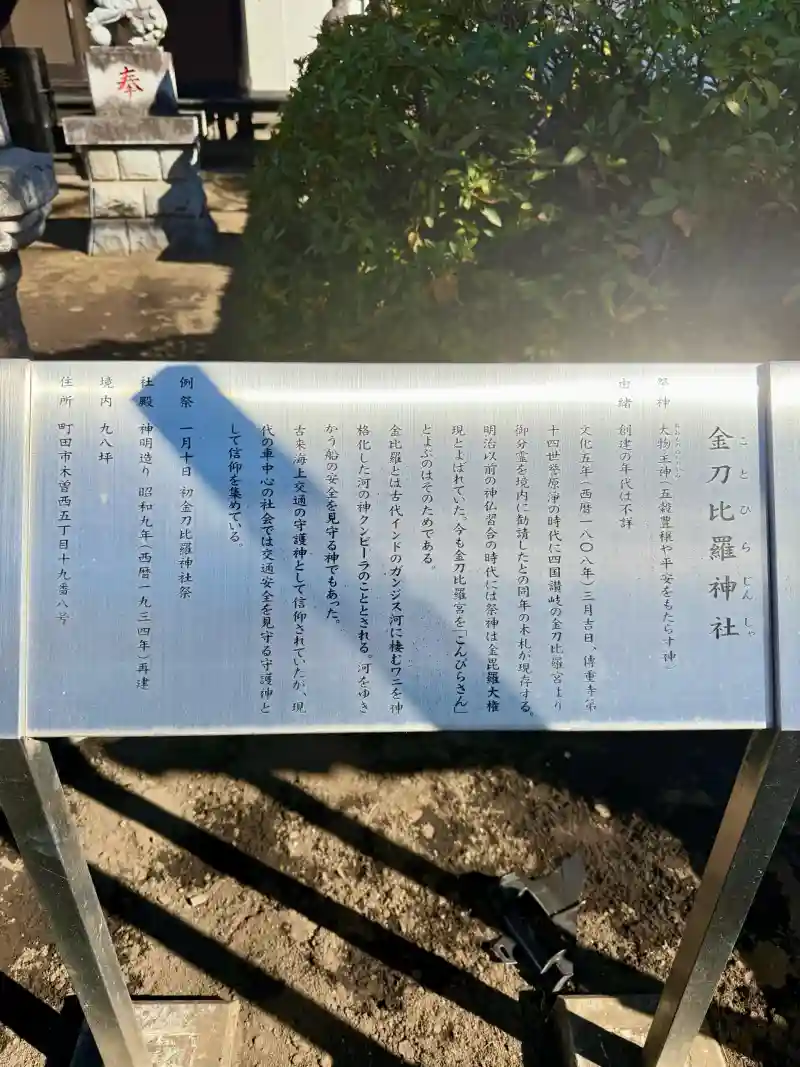 奉
金刀比羅神社
ことひらじんじゃ
祭神 大物主神（五穀豊穣や平安をもたらす神）
由緒 創建の年代は不詳
文化五年（西暦一八〇八年）三月吉日、傳重寺第
十四世
の時代に四国讃岐の金刀比羅宮より
御分霊を境内に勧請したとの同年の木札が現存する。
明治以前の神仏習合の時代には祭神は金毘羅大権
現とよばれていた。今も金刀比羅宮を「こんぴらさん」
とよぶのはそのためである。
金比羅とは古代インドのガンジス河に棲むワニを神
格化した河の神クンビーラのこととされる。河をゆき
かう船の安全を見守る神でもあった。
古来海上交通の守護神として信仰されていたが、現
代の車中心の社会では交通安全を見守る守護神と
して信仰を集めている。
例祭 一月十日 初金刀比羅神社祭
社殿 神明造り 昭和九年（西暦一九三四年）再建
境内 九八坪
住所 町田市木曽西五丁目十九番八号